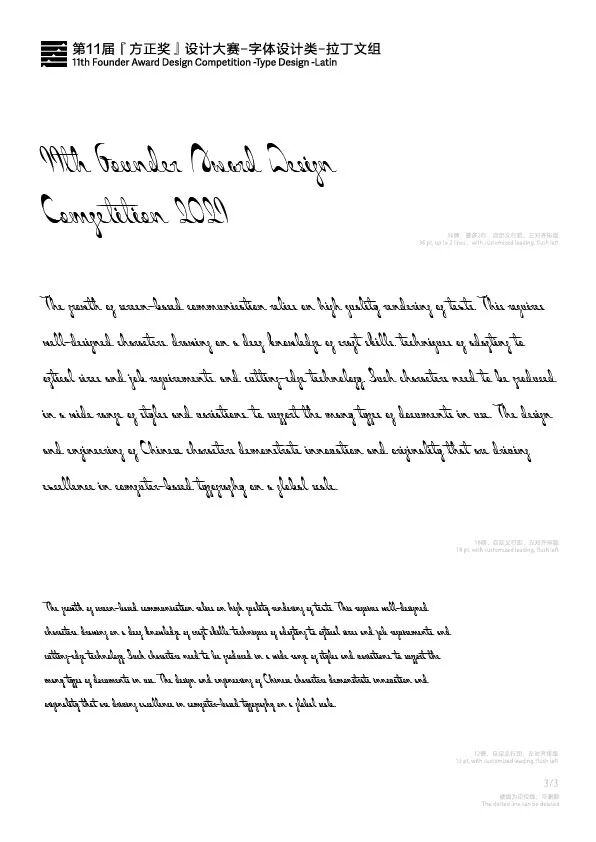 第11届『方正奖』设计大赛-字体设计类-拉丁文组
11th Founder Award Design Competition -Type Design -Latin
11th Founder Award Design
Competition 2021
36 pt, up to 2 lines, with customized leading, flush left
The growth of screen-based communication relies on high quality rendering of texts. This requires
well-designed characters drawing on a deep knowledge of craft skills, techniques of adapting to
optical sizes and job requirements, and cutting-edge technology. Such characters need to be produced
in a wide range of styles and variations to support the many types of documents in use. The design
and engineering of Chinese characters demonstrate innovation and originality that are driving
excellence in computer-based typography on a global scale.
18 pt, with customized leading, flush left
The growth of screen-based communication relies on high quality rendering of texts. This requires well-designed
characters drawing on a deep knowledge of craft skills, techniques of adapting to optical sizes and job requirements, and
cutting-edge technology. Such characters need to be produced in a wide range of styles and variations to support the
many types of documents in use. The design and engineering of Chinese characters demonstrate innovation and
originality that are driving excellence in computer-based typography on a global scale.
12 pt, with customized leading, flush left
3/3
The dotted line can be deleted